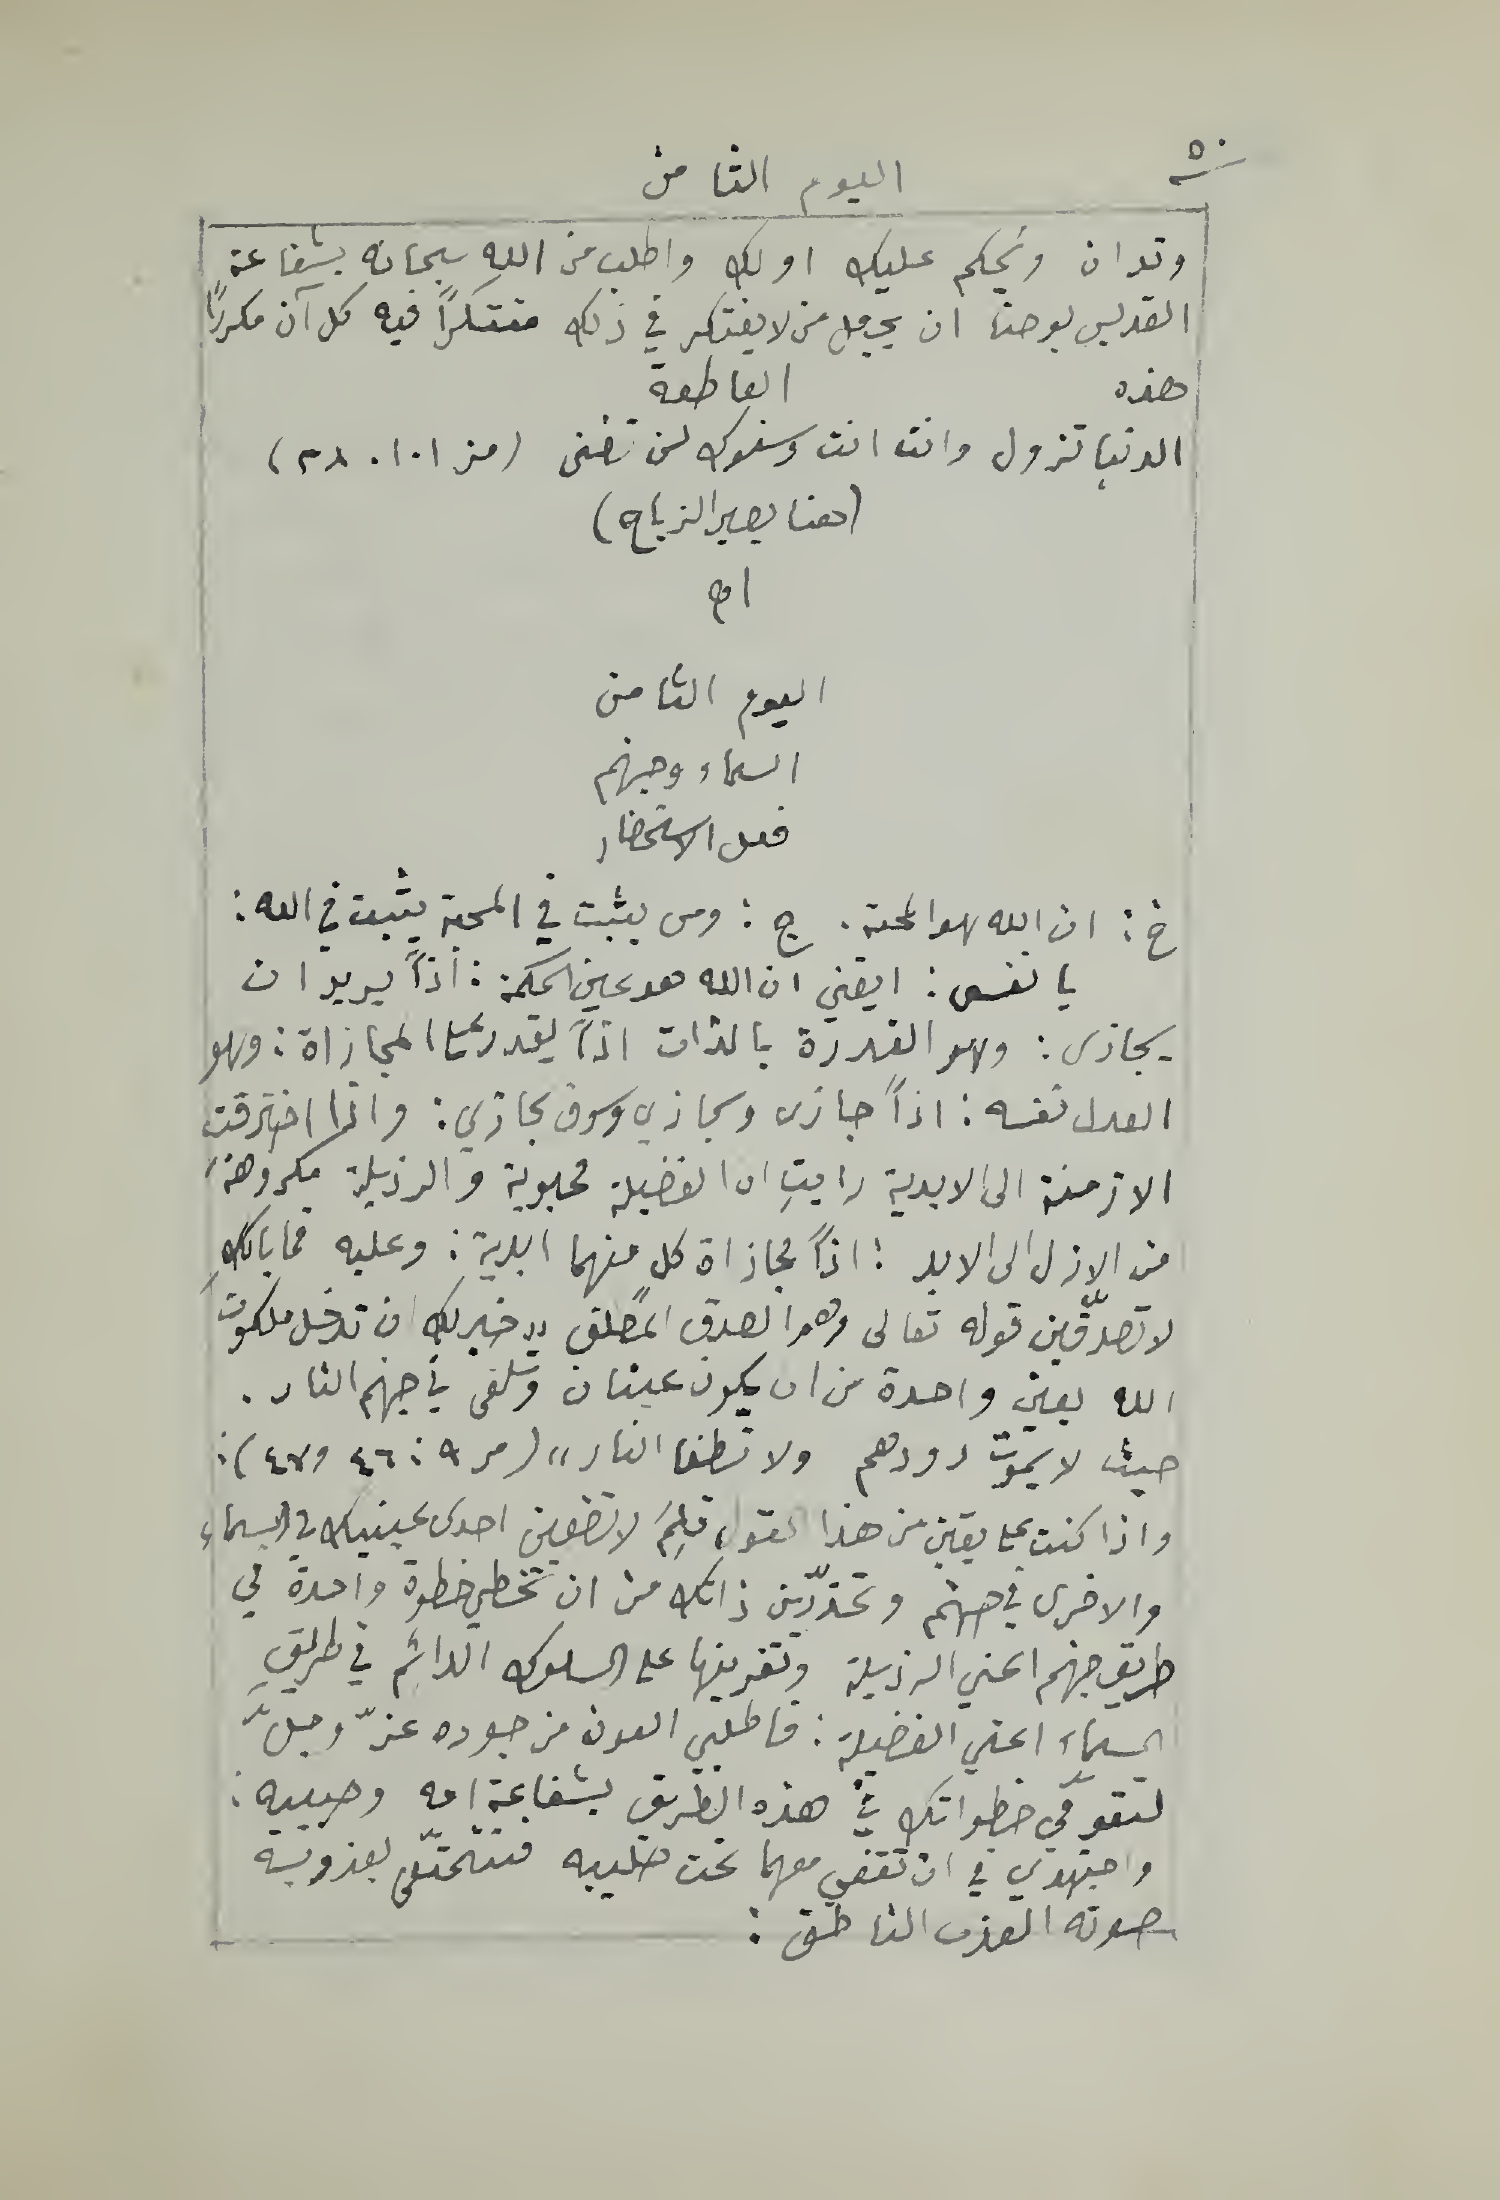 ٥٠
اليوم الثامن
وتدان ويحكم عليك او لك واطلب من الله سبحانه بشفاعة
القديس يوحنا ان يجعل من لا يفتكر في ذلك مفتكراً فيه كل آن مكرراً
هذه العاطفة
الدنيا تزول وانت انت وسنوك لن تفنى (مز ١٠١. ٢٨)
(هنا يصير الزياح)
اليوم الثامن
السماء وجهنم
فعل الاستحضار
خ: ان الله هو المحبة. ج: ومن يثبت في المحبة يثبت في الله:
يا نفس: ايقني ان الله هو عين الحكمة: اذاً يريد ان
يجازى: وهو القدرة بالذات اذاً يقدر على المجازاة: وهو
العدل نفسه: اذاً جازى ويجازي وسوف يجازي: واذا اخترقت
الازمنة الى الابدية رايتِ ان الفضيلة محبوبة والرذيلة مكروهة
من الازل الى الابد: اذاً مجازاة كل منهما ابدية: وعليه فما بالكِ
لا تصدّقين قوله تعالى وهو الصدق المطلق "خير لك ان تدخل ملكوت
الله بعين واحدة من ان يكون عينان وتلقى في جهنم النار.
حيث لا يموت دودهم ولا تطفا النار" (مر ٩: ٤٦ و٤٧):
واذا كنت على يقين من هذا القول فلِمَ لا تضعين احدى عينيك في السماء
والاخرى في جهنم وتحذّرين ذاتك من ان تخطي خطوة واحدة في
طريق جهنم اعني الرذيلة وتغرينها على السلوك الدائم في طريق
السماء اعني الفضيلة: فاطلبي العون من جوده عزّ وجلّ
لتقوّي خطواتك في هذه الطريق بشفاعة امه وحبيبه:
واجتهدي في ان تقفي معهما تحت صليبه بعذوبة
صوته العذب الناطق: